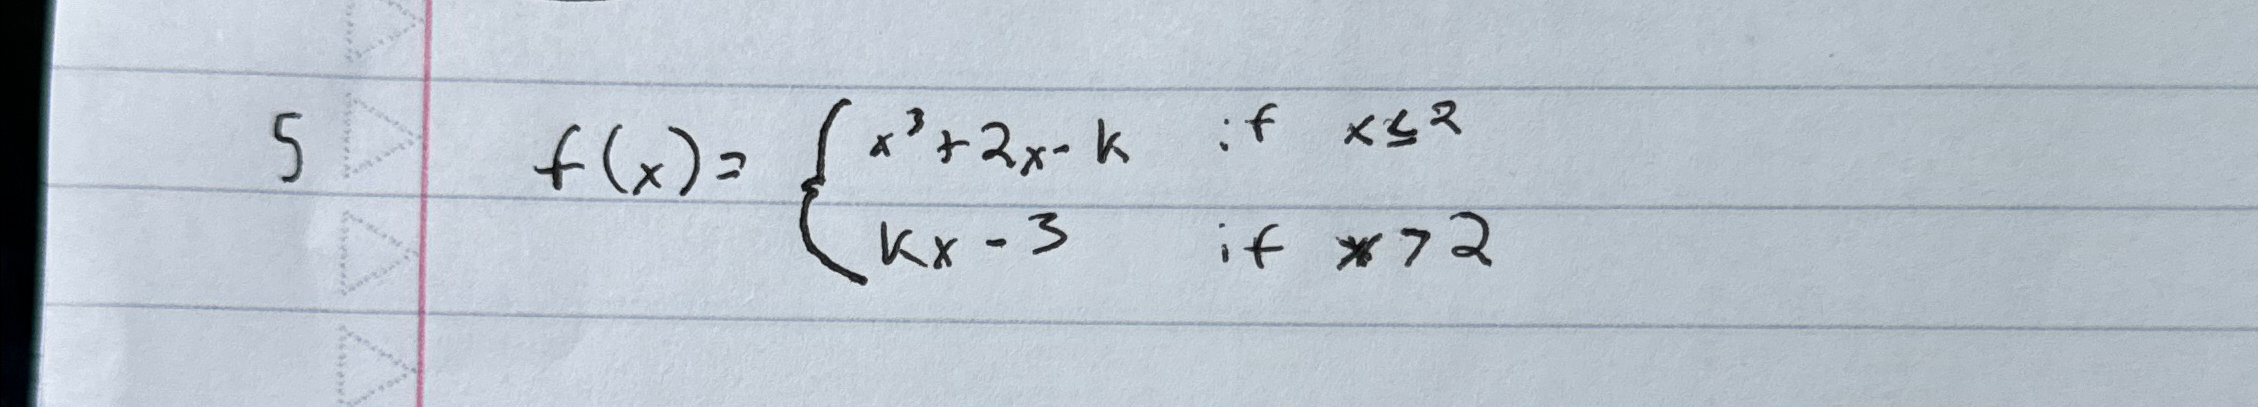 5 f(x) = { x³ + 2x - k if x ≤ 2
kx - 3 if x > 2